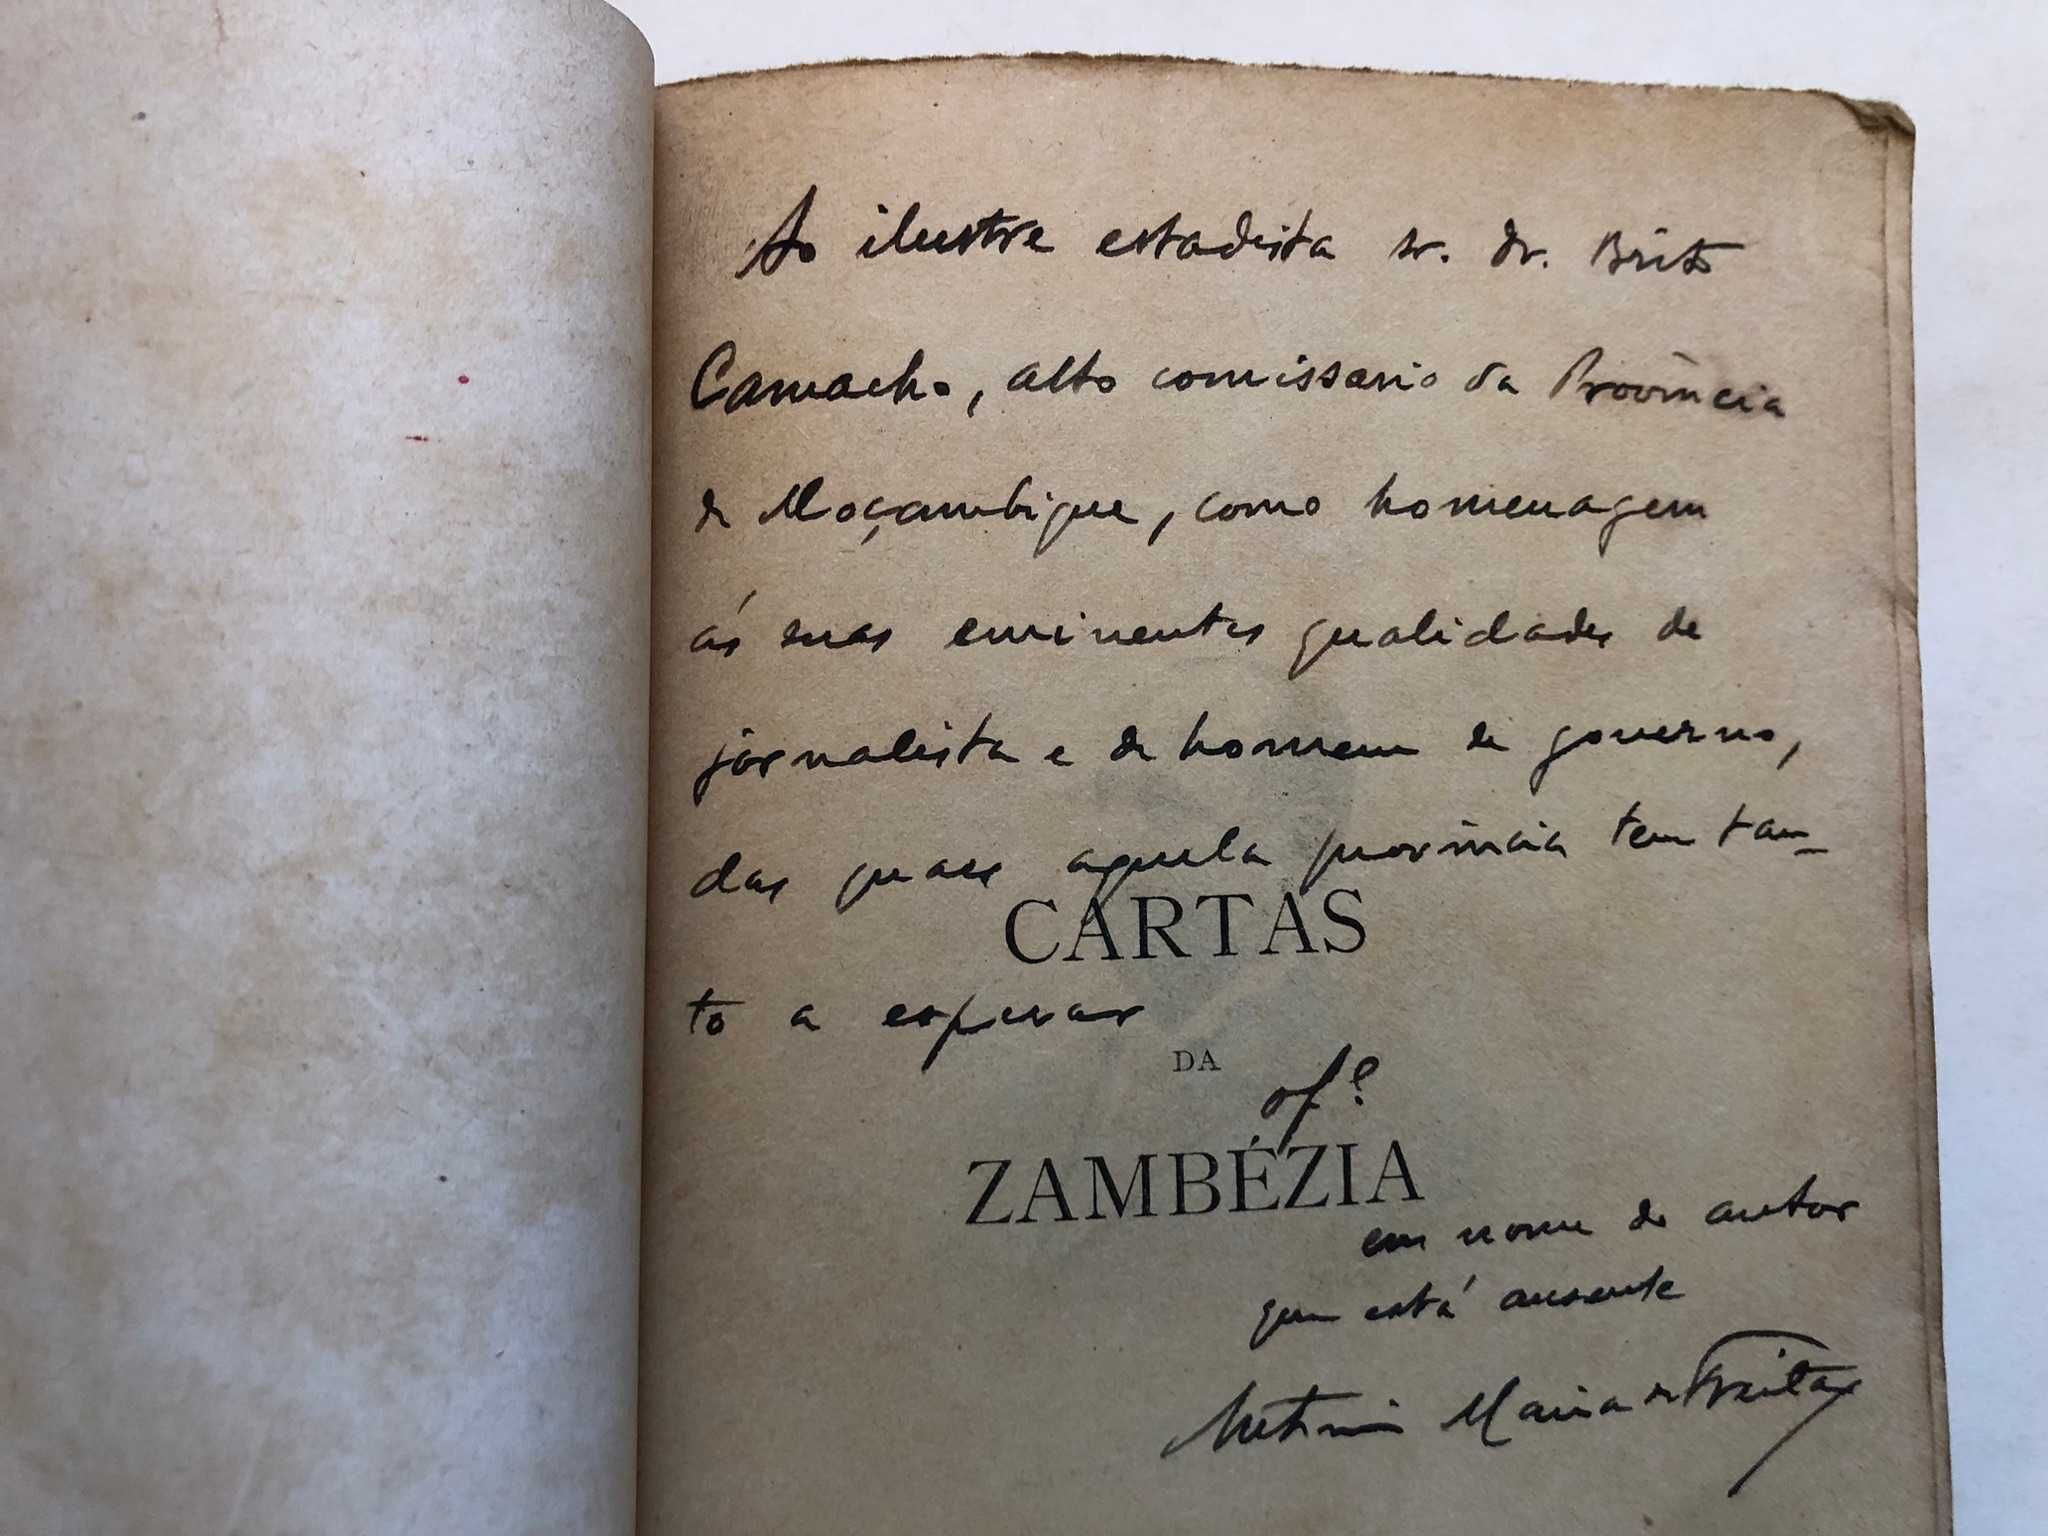 Ao ilustre estadista sr. dr. Brito
Camacho, alto comissario da Provincia
de Moçambique, como homenagem
ás suas eminentes qualidades de
jornalista e de homem de governo,
das quaes aquela provincia tem tan-
CARTAS
to a esperar
DA
of.e
ZAMBÉZIA
em nome do autor
que está ausente
Antonio Maria de Freitas